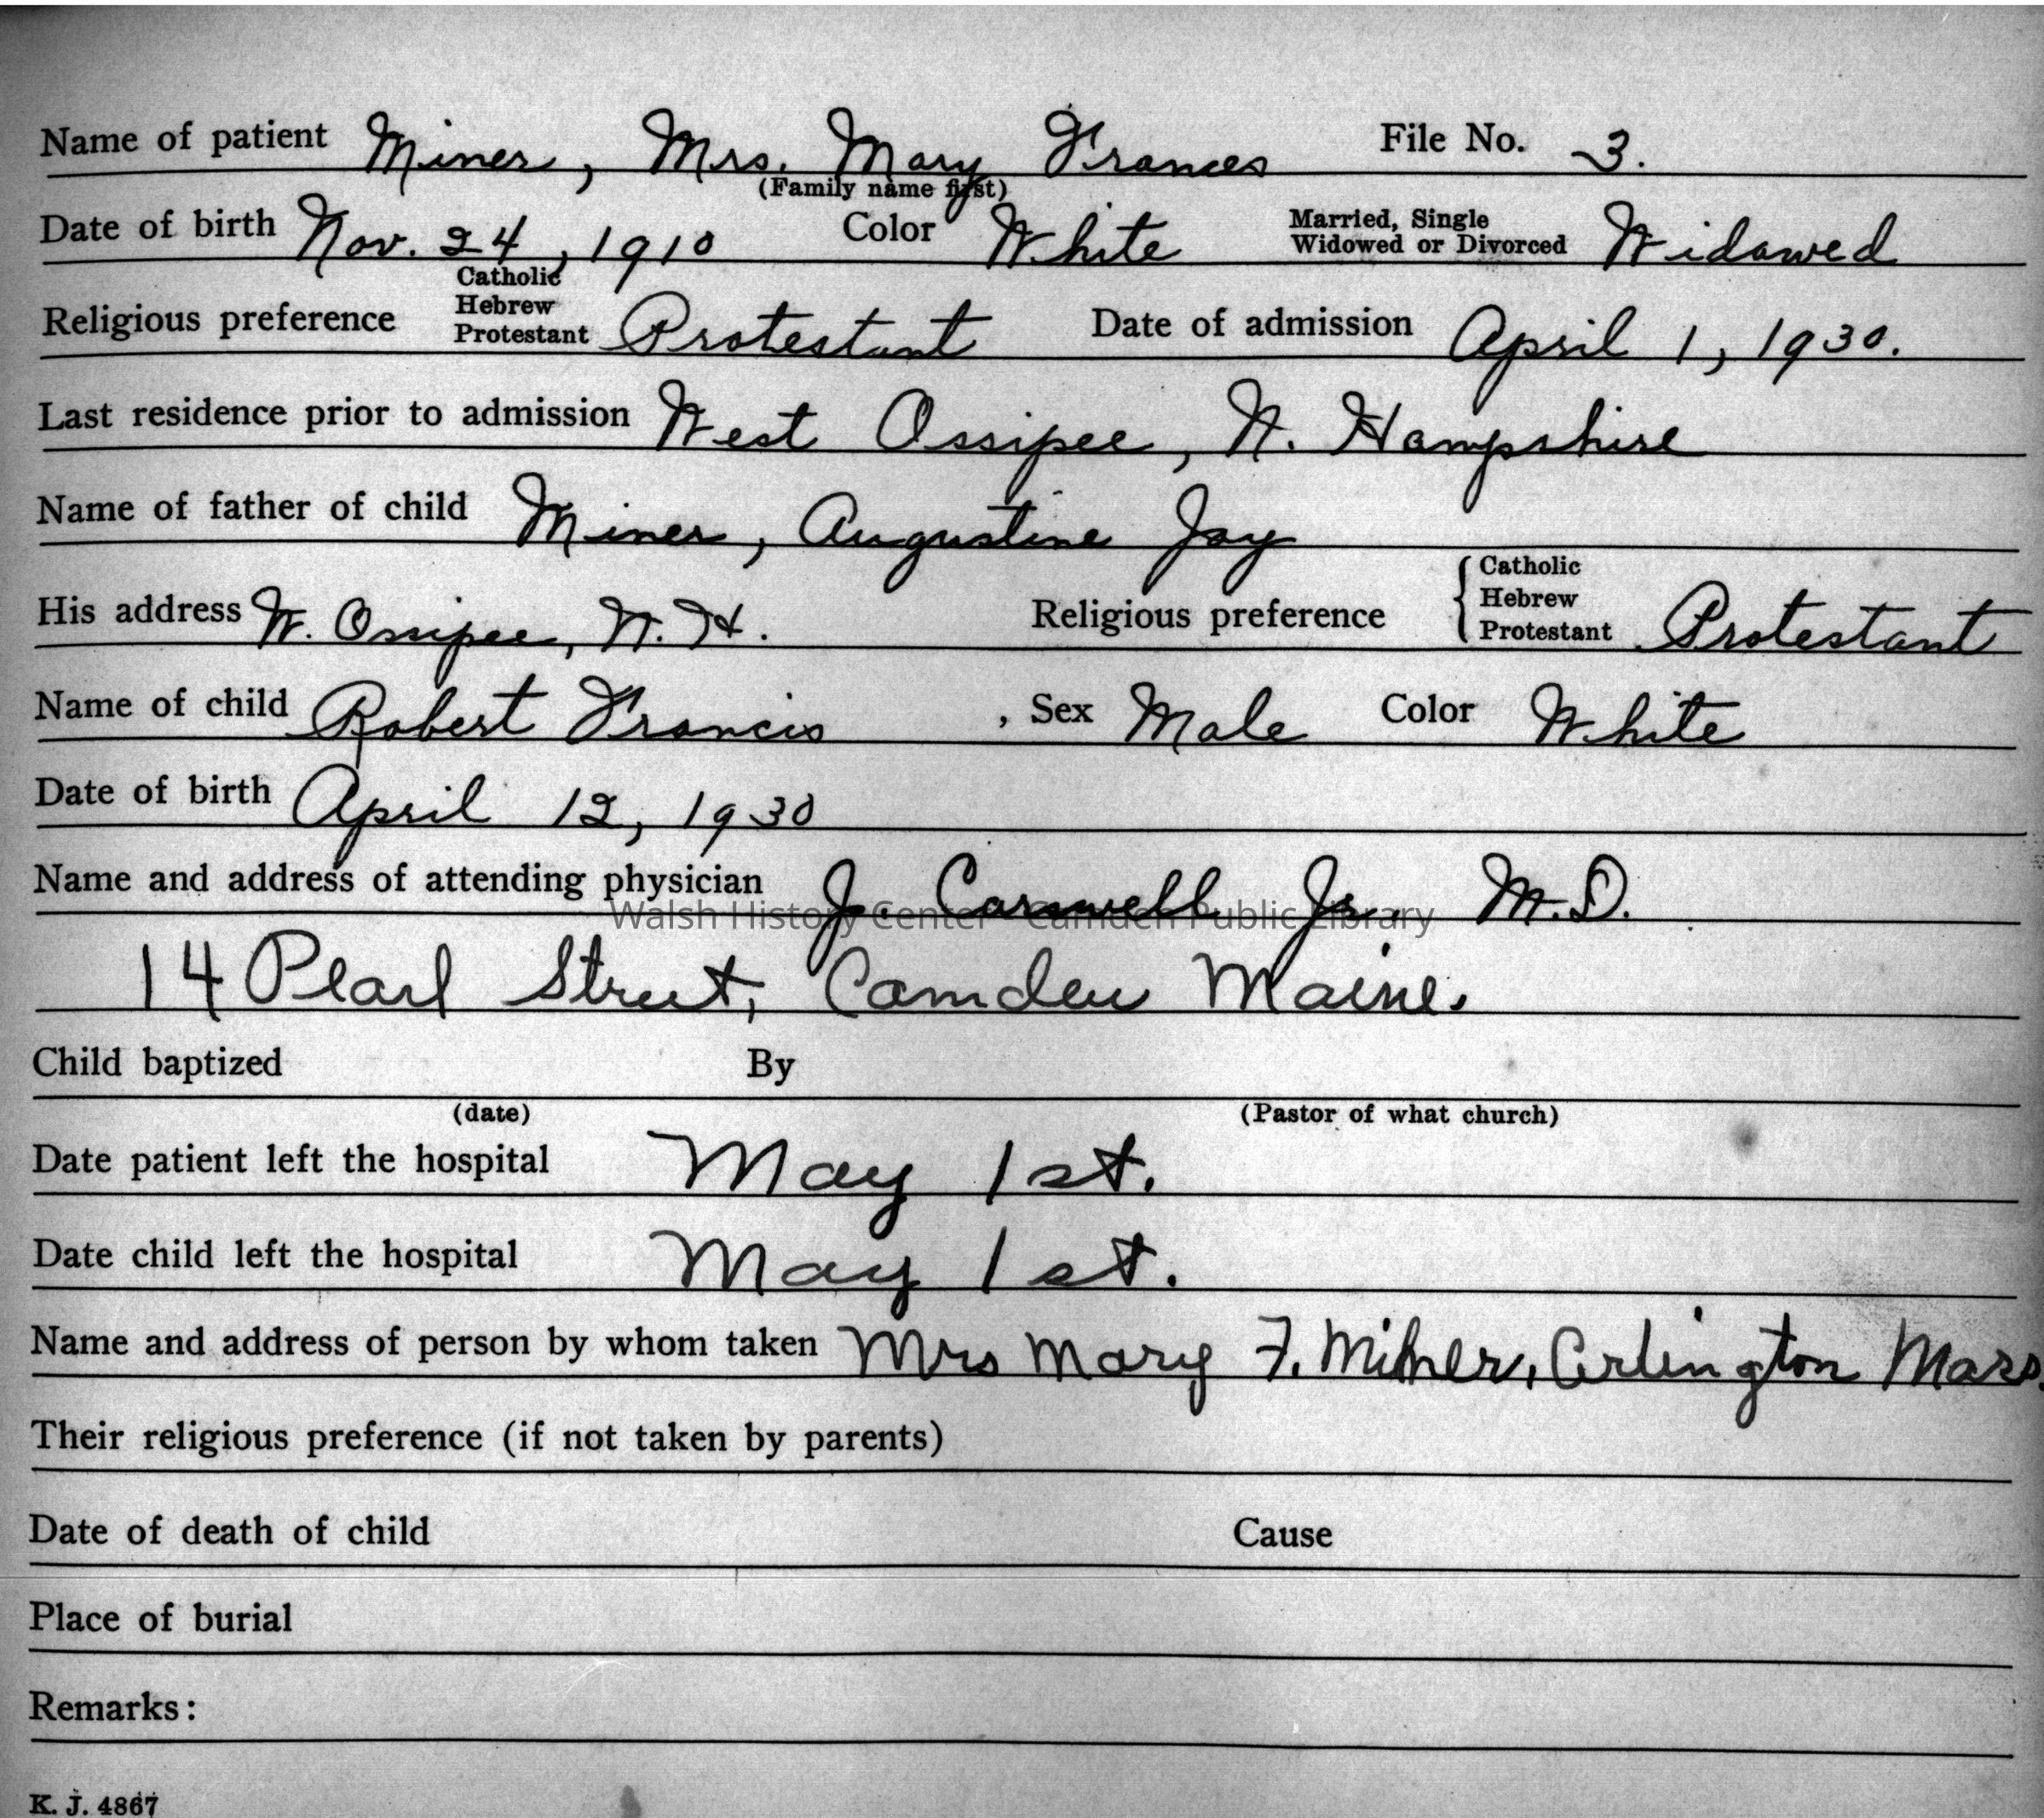 Name of patient Miner, Mrs. Mary Frances File No. 3.
(Family name first)
Date of birth Nov. 24, 1910 Color White Married, Single Widowed or Divorced Widowed
Religious preference Catholic Hebrew Protestant Protestant Date of admission April 1, 1930.
Last residence prior to admission West Ossipee, N. Hampshire
Name of father of child Miner, Augustine Jay
His address W. Ossipee, N.H. Religious preference { Catholic Hebrew Protestant Protestant
Name of child Robert Francis , Sex Male Color White
Date of birth April 12, 1930
Name and address of attending physician J. Carswell Jr. M.D.
Walsh History Center - Camden Public Library
14 Pearl Street, Camden Maine.
Child baptized By
(date) (Pastor of what church)
Date patient left the hospital May 1st.
Date child left the hospital May 1st.
Name and address of person by whom taken Mrs Mary F. Miner, Arlington Mass.
Their religious preference (if not taken by parents)
Date of death of child Cause
Place of burial
Remarks:
K. J. 4867